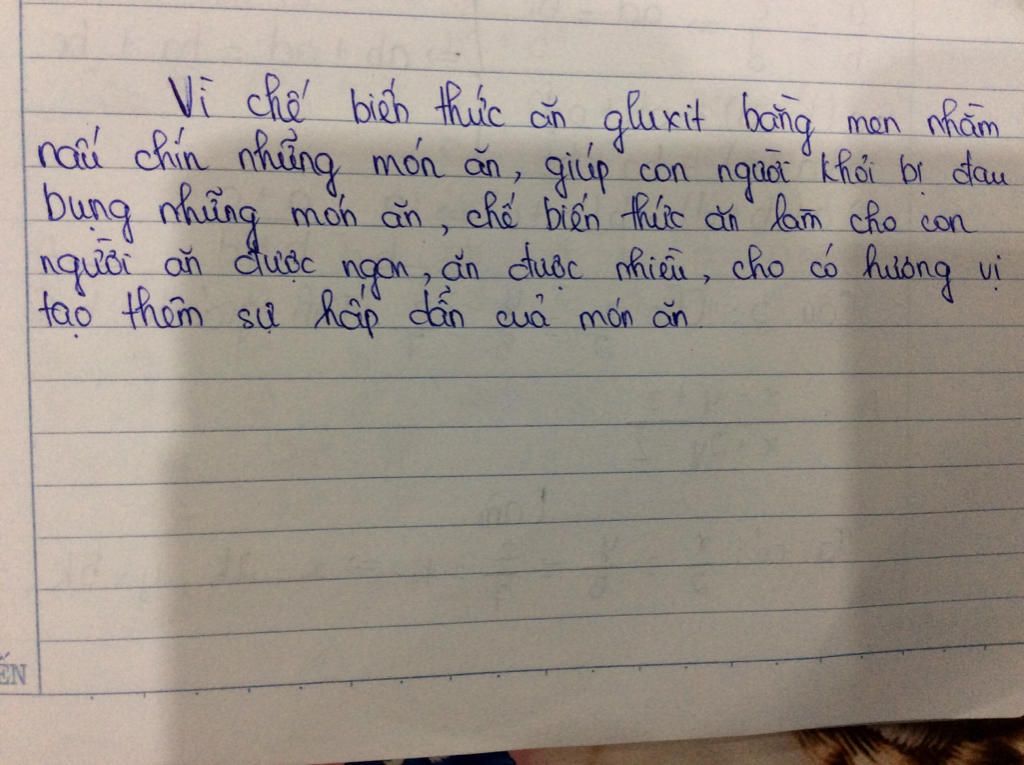 Vì chế biến thức ăn gluxit bằng men nhằm
nấu chín những món ăn, giúp con người khỏi bị đau
bụng những món ăn, chế biến thức ăn làm cho con
người ăn được ngon, ăn được nhiều, cho có hương vị
tạo thêm sự hấp dẫn cuả món ăn.
ẾN